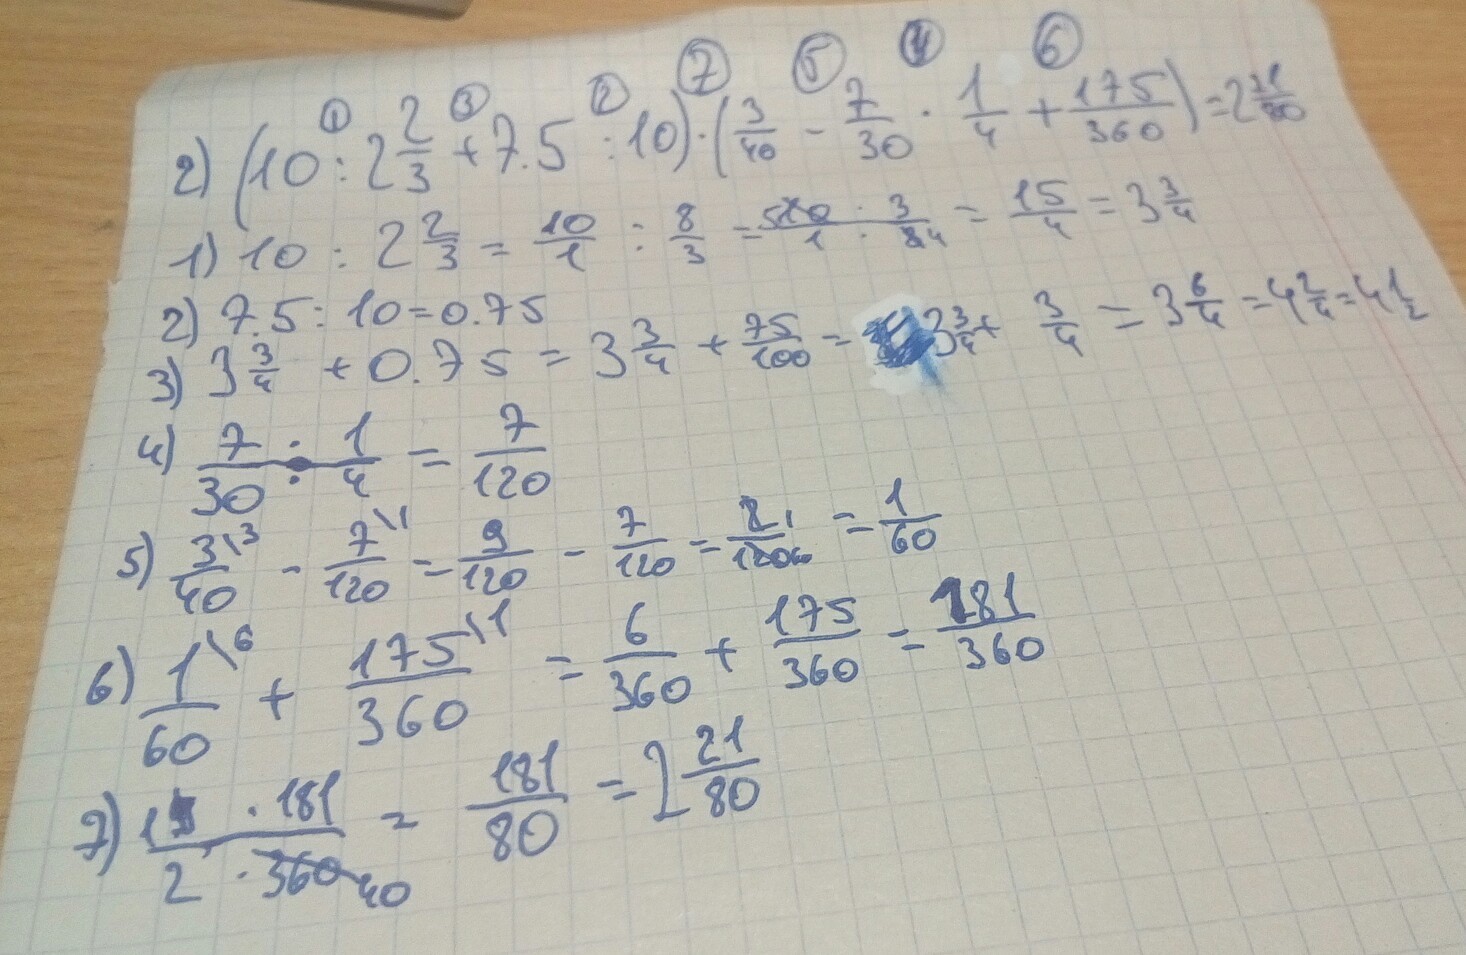 ① ③ ② ⑦ ⑤ ④ ⑥
2) (10 : 2 2/3 + 7.5 : 10) · (3/40 - 7/30 · 1/4 + 175/360) = 2 21/80
1) 10 : 2 2/3 = 10/1 : 8/3 = 5 10/1 · 3/8 4 = 15/4 = 3 3/4
2) 7.5 : 10 = 0.75
3) 3 3/4 + 0.75 = 3 3/4 + 75/100 = 3 3/4 + 3/4 = 3 6/4 = 4 2/4 = 4 1/2
4) 7/30 · 1/4 = 7/120
5) 3\3/40 - 7\1/120 = 9/120 - 7/120 = 2 1/120 60 = 1/60
6) 1\6/60 + 175\1/360 = 6/360 + 175/360 = 181/360
7) · 181/2 · 360 40 = 181/80 = 2 21/80